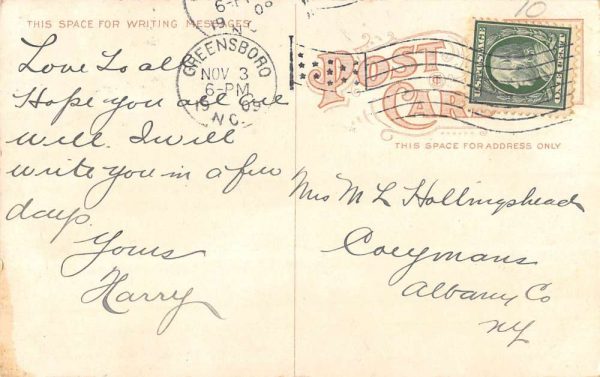 THIS SPACE FOR WRITING MESSAGES
Love to all
Hope you all are
well. I will
write you in a few
days.
Yours
Harry
GREENSBORO
NOV 3
6-PM
N.C.
6-PM
N.C.
10
POST
CARD
U.S. POSTAGE
ONE CENT
THIS SPACE FOR ADDRESS ONLY
Mrs M L Hollingshead
Coeymans
Albany Co
NY